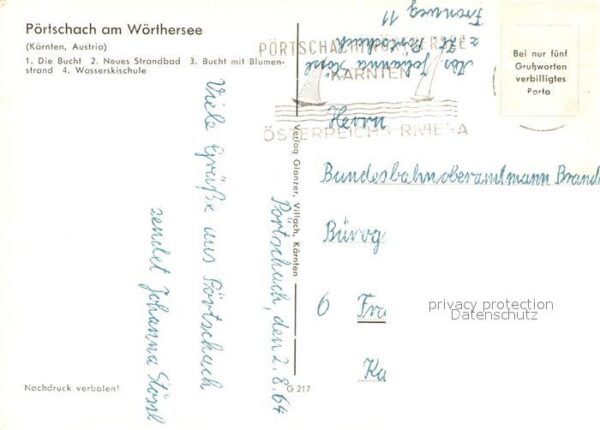 Pörtschach am Wörthersee
(Kärnten, Austria)
1. Die Bucht 2. Neues Strandbad 3. Bucht mit Blumen-
strand 4. Wasserskischule
Pörtschach, den 2.8.64
Viele Grüße aus Pörtschach
sendet Johanna Stössl
Nachdruck verboten!
Verlag Glanzer, Villach, Kärnten
G 217
Abs. Johanna Stössl
z. Zt. Pörtschach
Fronweg 11
PÖRTSCHACH
KÄRNTEN
ÖSTERREICHS RIVIERA
Bei nur fünf
Grußworten
verbilligtes
Porto
Herrn
Bundesbahnoberamtmann Brand
Büro
6 Fra
Ka
privacy protection
Datenschutz